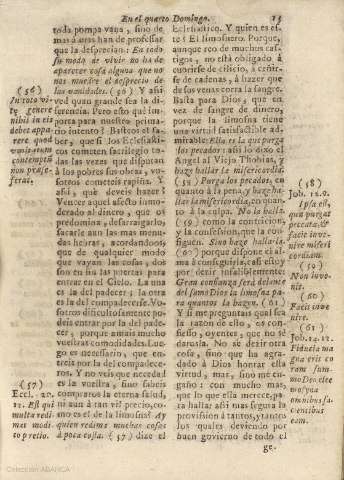 En el quarto Domingo. 15
toda pompa vana, sino de
mas à mas han de professar
que la desprecian: En todo
su modo de vivir no ha de
aparecer cosa alguna que no
nos muestre el desprecio de
las vanidades. (56) Y assi
ved quan grande sea la di-
ferencia. Pero esto què im-
porta para nuestro pri-
mario intento? Basteos el sa-
ber, que si los Ecclesiasti-
cos cometen sacrilegio to-
das las vezes que disputan
à los pobres sus obras, vo-
sotros cometeis rapiña. Y
assi, què deveis hazer?
Vencer aquel afecto inmo-
derado al dinero, que os
predomina, desarraigarlo,
sacarle aun las mas menu-
das hebras, acordandoos,
que de qualquier modo
que vayan las cosas, dos
son en fin las puertas para
entrar en el Cielo. La una
es la del padecer; la otra
es la del compadecerse. Vo-
sotros dificultosamente po-
deis entrar por la del pade-
cer; porque amais mucho
vuestras comodidades. Lue-
go es necessario, que en-
treis por la del compadece-
ros. Y no veis que acceder
es la vuestra, sino sabeis
comparos la eterna salud,
ni aun à tan vil precio, co-
mo es el de la limosna? Ay
quien redime muchas cosas
à poca costa. (57) dize el
(56)
In toto vi-
tæ genere
nihil in eis
debet appa-
rere quod
vanitatum
contemptũ
non præse-
ferat.
(57)
Eccl. 20.
12. Est qui
multa redi-
mat modi-
co pretio.
Ecclesiastico. Y quien es es-
te? El limosnero. Porque,
aunque reo de muchos cas-
tigos, no està obligado à
cubrirse de cilicio, à ceñir-
se de cadenas, à hazer que
de sus venas corra la sangre.
Basta para Dios, que en
vez de sangre de dinero,
porque la limosna tiene
una virtud satisfactible ad-
mirable: Ella es la que purga
los pecados: assi lo dixo el
Angel al Viejo Thobias, y
haze hallar la misericordia.
(58) Purga los pecados, en
quanto à la pena, y haze ha-
llar la misericordia, en quan-
to à la culpa. No la halla
(59) como la contricion,
y la confession, que la con-
siguen: Sino haze hallarla
(60) porque os dispone el
ama à conseguirla, y assi estoy
por dezir infaliblemente:
Gran confianza serà delante
del sumo Dios la limosna pa-
ra quantos la hazen. (61)
Y si me preguntais qual sea
la razon de ello, os con-
fiesso, oyentes, que no sè
daros la. No se dezir otra
cosa, sino que ha agra-
dado à Dios honrar esta
virtud, mas, sino me en-
gaño: con mucho mas,
que lo que ella merece, pa-
ra halla: assi mas segura la
provision à tantos, y tantos
los quales deviendo por
buen govierno de todo el
ge-
(58)
Job. 12.9.
Ipsa est,
quæ purgat
peccata, &
facit inve-
nire miseri
cordiam.
(59)
Non inve-
nit.
(60)
Facit inve-
nire.
(61)
Job. 4.12.
Fiducia ma
gna erit co
ram sum-
mo Deo ele
mosyna
omnibus fa-
cientibus
eam.
Colección ABANCA